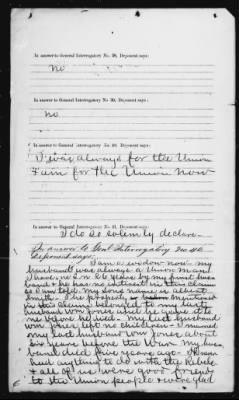 In answer to General Interrogatory No. 38, Deponent says:
No
In answer to General Interrogatory No. 39, Deponent says:
no
In answer to General Interrogatory No. 40, Deponent says:
I was always for the Union
I am for the Union now
In answer to General Interrogatory No. 41, Deponent says:
I do so solemly declare—
In answer to Genl Interrogatory No 40
Deponent says:
I am a widow now— my
husband was always a Union man I
have no 26 years by my first hus
band & he has no interest in this claim
as I am told. My son's name is Albert
Smith. The property mentioned
in this claim belonged to my last
husband Wm Jones and he gave it to
me before he died. My last husband
Wm Jones left no children— I married
my last husband Wm Jones about
six years before the War. My hus
band died five years ago. I never
had anything to do with the Rebels
& all of us were good friends
to the Union people & were glad